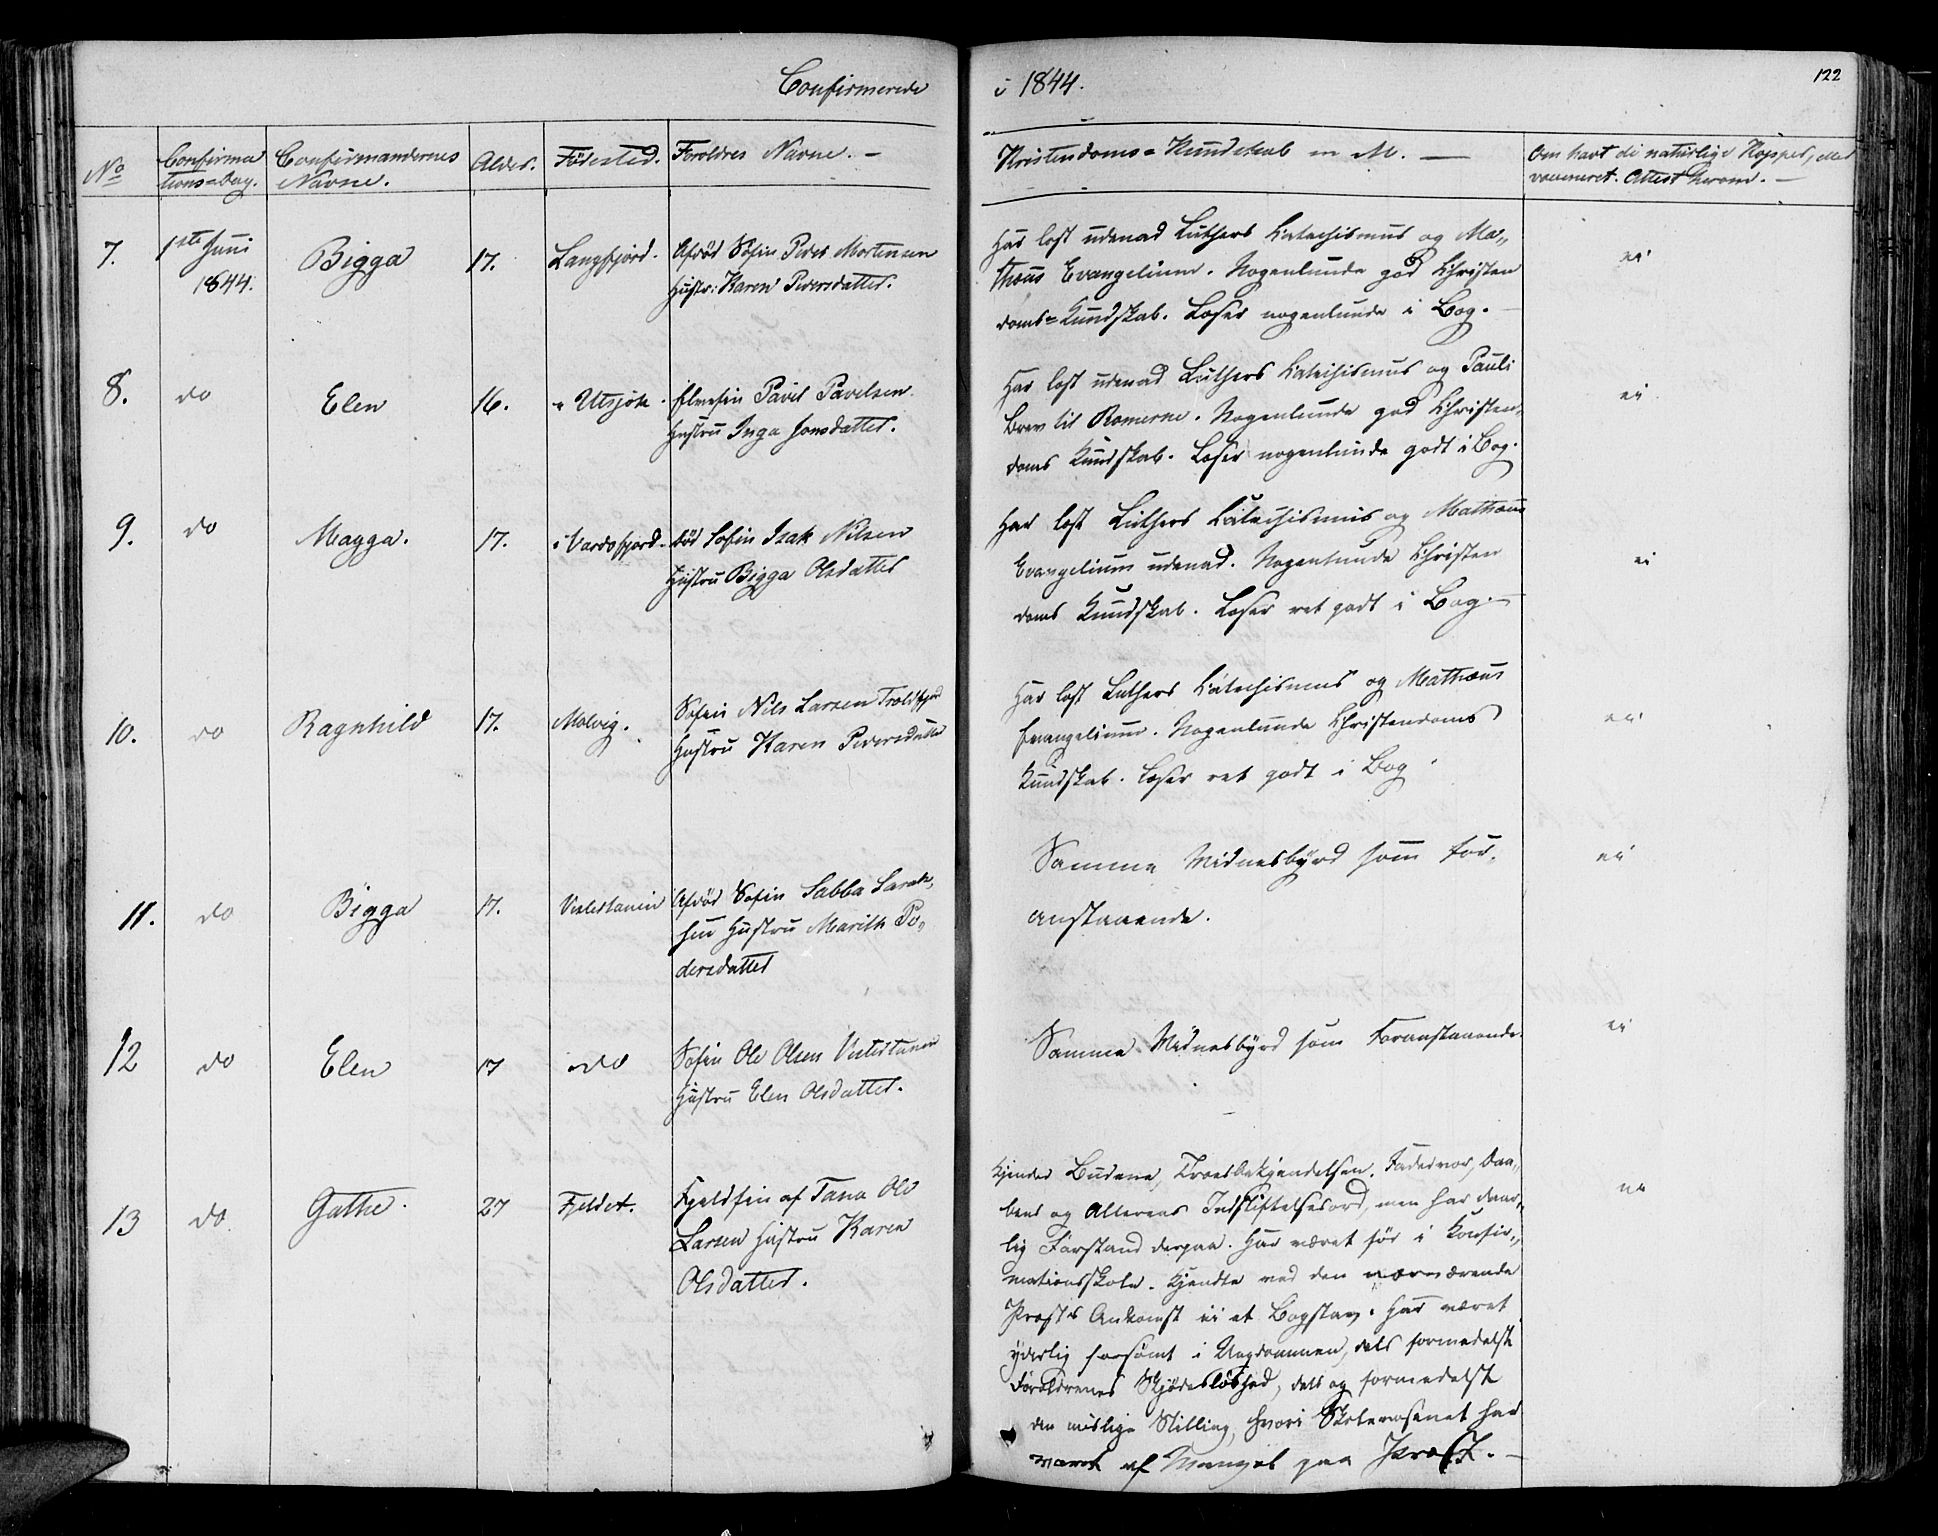 Confirmerede
i 1844.
122
No
Confirma
tions-dag.
Confirmandernes
Navne.
Alder.
Födested.
Foreldres Navne. –
Kristendoms-Kundskab m. M. —
Om havt de naturlige Kopper, eller
vaccineret. Attest herom. –
7.
1ste Juni
1844.
Bigga
17.
Langfjord.
Afdöd Söfin Peder Mortensen
Hustr: Karen Pedersdatter.
Har læst udenad Luthers Catechismus og Ma„
thæus Evangelium. Nogenlunde god Christen
doms-Kundskab. Læser nogenlunde i Bog. –
ei
8.
do
Elen
16.
Utsjok.
Elvefin Pavil Pavelsen
Hustru Inga Jonsdatter.
Har læst udenad Luthers Catechismus og Pauli
Brev til Romerne. Nogenlunde god Christen„
doms Kundskab. Læser nogenlunde godt i Bog.
ei
9.
do
Magga.
17.
i Vardofjord.
död Söfin Isak Nilsen
Hustru Bigga Olsdatter
Har læst Luthers Catechismus og Mathæus
Evangelium udenad. Nogenlunde Christen
doms Kundskab. Læser ret godt i Bog. –
ei
10.
do
Ragnhild
17.
Molvig.
Söfin Nils Larsen Troldfjord
Hustru Karen Pedersdatter
Har læst Luthers Catechismus og Mathæus
Evangelium. Nogenlunde Christendoms
Kundskab. Læser ret godt i Bog.
ei
11.
do
Bigga
17.
Vielestanin
Afdöd Söfin Sabba Sarak„
sen Hustru Marith Pe„
dersdatter
Samme Vidnesbyrd som for„
anstaaende.
ei
12
do
Elen
17
do
Söfin Ole Olsen Vielestanin
Hustru Elen Olsdatter.
Samme Vidnesbyrd som Foranstaaende.
ei
13
do
Gathe.
27
Fjeldet.
Fjeldfin af Tana Ole
Larsen Hustru Karen
Olsdatter.
Kjender Budene, Troesbekjendelsen, Fadervor, Daa„
bens og Alterens Indstiftelsesord, men har daar„
lig Forstand derpaa. Har været för i Konfir„
mationsskole. Kjendte ved den nærværende
Præsts Ankomst ei et Bogstav. Har været
yderlig forsömt i Ungdommen, dels formedelst
Foreldrenes Skjödeslöshed, dels og formedelst
den mislige Stilling, hvori Skolevæsenet har
været af Mangel paa Præst. –
ei